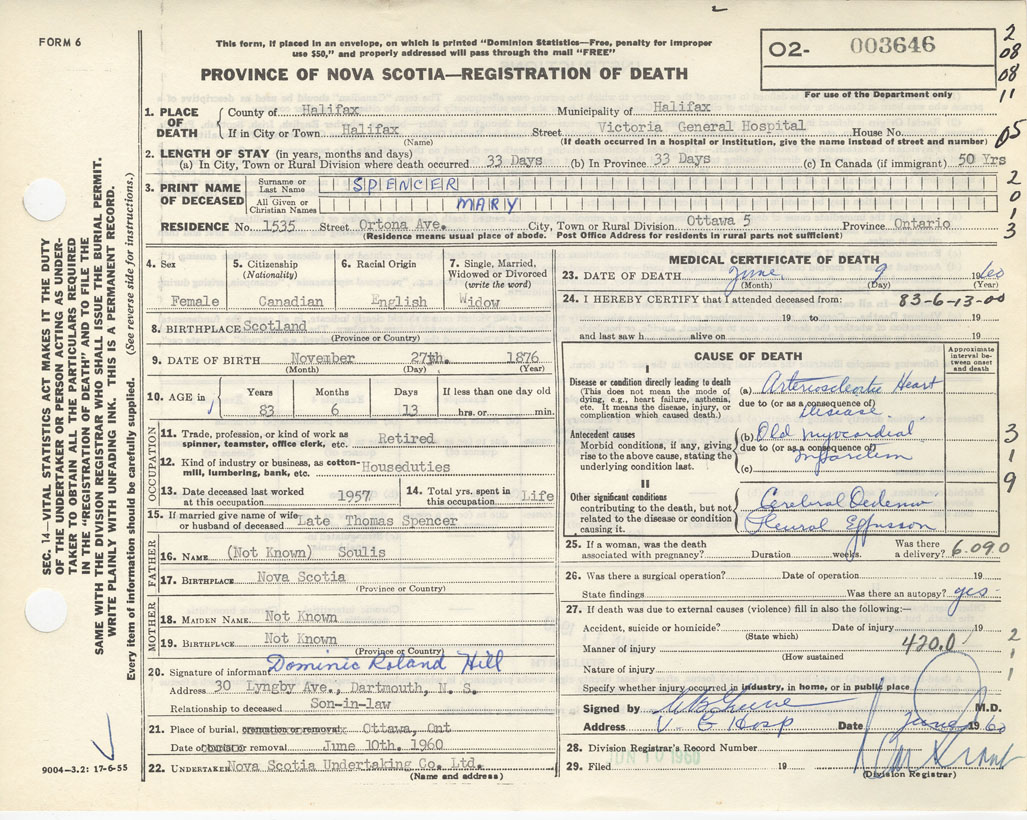 FORM 6
This form, if placed in an envelope, on which is printed "Dominion Statistics—Free, penalty for improper
use $50," and properly addressed will pass through the mail "FREE"
PROVINCE OF NOVA SCOTIA—REGISTRATION OF DEATH
O2- 003646
For use of the Department only
2
08
08
11
05
2
0
1
3
3
1
9
2
1
1
SEC. 14.—VITAL STATISTICS ACT MAKES IT THE DUTY
OF THE UNDERTAKER OR PERSON ACTING AS UNDER-
TAKER TO OBTAIN ALL THE PARTICULARS REQUIRED
IN THE "REGISTRATION OF DEATH" AND TO FILE THE
SAME WITH THE DIVISION REGISTRAR WHO SHALL ISSUE THE BURIAL PERMIT.
WRITE PLAINLY WITH UNFADING INK. THIS IS A PERMANENT RECORD.
Every item of information should be carefully supplied. (See reverse side for instructions.)
9004—3.2: 17-6-55
1. PLACE OF DEATH
County of Halifax Municipality of Halifax
If in City or Town Halifax Street Victoria General Hospital House No.
(Name) (If death occurred in a hospital or institution, give the name instead of street and number)
2. LENGTH OF STAY (in years, months and days)
(a) In City, Town or Rural Division where death occurred 33 Days (b) In Province 33 Days (c) In Canada (if immigrant) 50 Yrs
3. PRINT NAME OF DECEASED
Surname or Last Name SPENCER
All Given or Christian Names MARY
RESIDENCE No. 1535 Street Ortona Ave. City, Town or Rural Division Ottawa 5 Province Ontario
(Residence means usual place of abode. Post Office Address for residents in rural parts not sufficient)
4. Sex 5. Citizenship (Nationality) 6. Racial Origin 7. Single, Married, Widowed or Divorced (write the word)
Female Canadian English Widow
8. BIRTHPLACE Scotland
(Province or Country)
9. DATE OF BIRTH November 27th. 1876
(Month) (Day) (Year)
10. AGE in Years Months Days If less than one day old
83 6 13 hrs. or min.
OCCUPATION
11. Trade, profession, or kind of work as spinner, teamster, office clerk, etc. Retired
12. Kind of industry or business, as cotton-mill, lumbering, bank, etc. Houseduties
13. Date deceased last worked at this occupation 1957 14. Total yrs. spent in this occupation Life
15. If married give name of wife or husband of deceased Late Thomas Spencer
FATHER
16. NAME (Not Known) Soulis
17. BIRTHPLACE Nova Scotia
(Province or Country)
MOTHER
18. MAIDEN NAME Not Known
19. BIRTHPLACE Not Known
(Province or Country)
20. Signature of informant Dominic Roland Hill
Address 30 Lyngby Ave., Dartmouth, N. S.
Relationship to deceased Son-in-law
21. Place of burial, cremation or removal Ottawa, Ont
Date of burial or removal June 10th. 1960
22. UNDERTAKER Nova Scotia Undertaking Co. Ltd.
(Name and address)
MEDICAL CERTIFICATE OF DEATH
23. DATE OF DEATH June 9 1960
(Month) (Day) (Year)
24. I HEREBY CERTIFY that I attended deceased from: 83-6-13-00
19 to 19
and last saw h alive on 19
CAUSE OF DEATH
Approximate interval between onset and death
I
Disease or condition directly leading to death
(This does not mean the mode of dying, e.g., heart failure, asthenia, etc. It means the disease, injury, or complication which caused death.)
(a) Arteriosclerotic Heart
due to (or as a consequence of)
Disease
Antecedent causes
Morbid conditions, if any, giving rise to the above cause, stating the underlying condition last.
(b) Old myocardial
due to (or as a consequence of)
infarction
(c)
II
Other significant conditions
contributing to the death, but not related to the disease or condition causing it.
Cerebral Oedema
Pleural Effusion
25. If a woman, was the death associated with pregnancy? Duration weeks. Was there a delivery? 6.090
26. Was there a surgical operation? Date of operation 19
State findings Was there an autopsy? yes
27. If death was due to external causes (violence) fill in also the following:—
Accident, suicide or homicide? Date of injury 19
(State which)
Manner of injury 420.0
(How sustained
Nature of injury
Specify whether injury occurred in industry, in home, or in public place
Signed by M.D.
Address V. G Hosp Date June 1960
28. Division Registrar's Record Number
29. Filed JUN 10 1960 19
(Division Registrar)